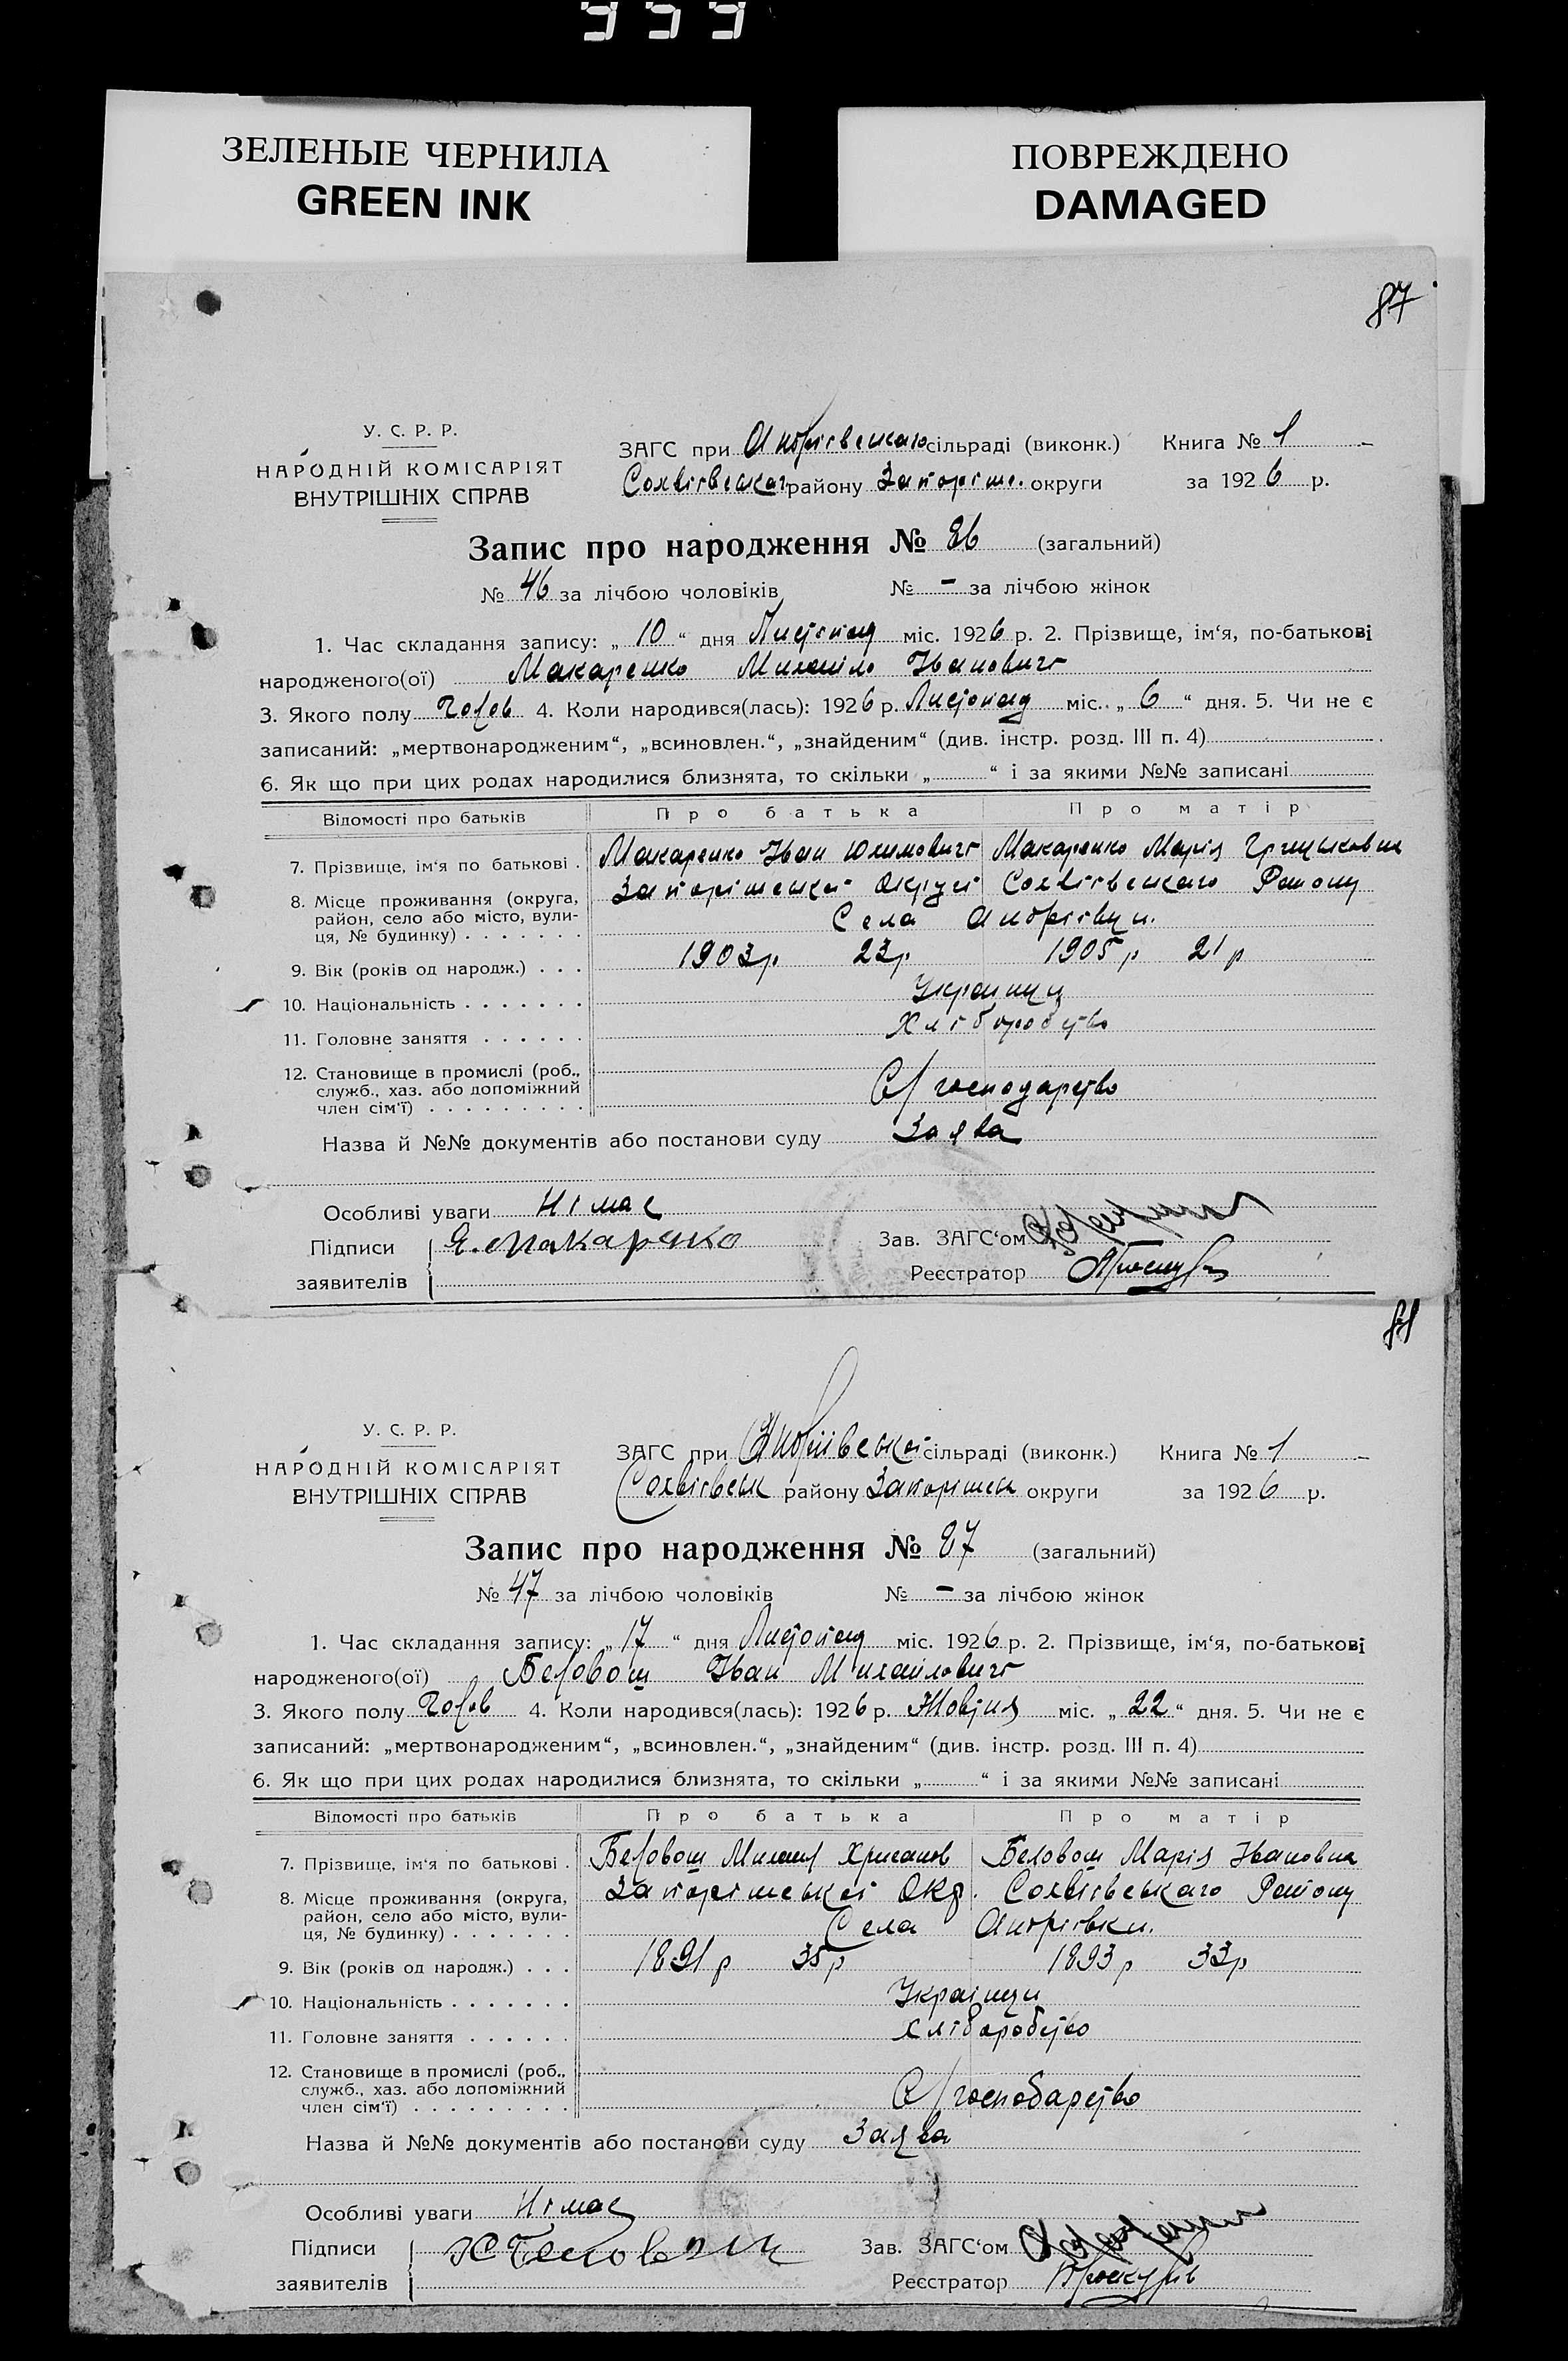 999
ЗЕЛЕНЫЕ ЧЕРНИЛА
GREEN INK
ПОВРЕЖДЕНО
DAMAGED
87
У. С. Р. Р.
НАРОДНІЙ КОМІСАРІЯТ
ВНУТРІШНІХ СПРАВ
ЗАГС при Андріівського сільраді (виконк.) Книга № 1
району Запоріж. округи за 1926 р.
Запис про народження № 86 (загальний)
№ 46 за лічбою чоловіків № - за лічбою жінок
1. Час складання запису: „ 10 “ дня Листопад міс. 1926 р. 2. Прізвище, ім‘я, по-батькові
народженого(ої) Макаренко Михайло Іванович
3. Якого полу Чолов 4. Коли народився(лась): 1926 р. Листопад міс. „ 6 “ дня. 5. Чи не є
записаний: „мертвонародженим“, „всиновлен.“, „знайденим“ (див. інстр. розд. III п. 4)
6. Як що при цих родах народилися близнята, то скільки „ “ і за якими №№ записані
Відомості про батьків Про батька Про матір
7. Прізвище, ім‘я по батькові . Макаренко Іван Юхимович Макаренко Марія Грицьковна
8. Місце проживання (округа, Округі Району
район, село або місто, вули- Села Андріівки.
ця, № будинку) . . . . . . .
9. Вік (років од народж.) . . . 1903р 23р 1905р 21р
10. Національність . . . . . . . Украінці
11. Головне заняття . . . . . . Хліборобство
12. Становище в промислі (роб.,
служб., хаз. або допоміжний С/господарство
член сім‘ї) . . . . . . . . .
Назва й №№ документів або постанови суду Заява
Особливі уваги Німає
Підписи Макаренко Зав. ЗАГС‘ом
заявителів Реєстратор
88
У. С. Р. Р.
НАРОДНІЙ КОМІСАРІЯТ
ВНУТРІШНІХ СПРАВ
ЗАГС при Андріівської сільраді (виконк.) Книга № 1
району округи за 1926 р.
Запис про народження № 87 (загальний)
№ 47 за лічбою чоловіків № - за лічбою жінок
1. Час складання запису: „ 17 “ дня Листопад міс. 1926 р. 2. Прізвище, ім‘я, по-батькові
народженого(ої) Беловош Іван Михайлович
3. Якого полу Чолов 4. Коли народився(лась): 1926 р. Жовтня міс. „ 22 “ дня. 5. Чи не є
записаний: „мертвонародженим“, „всиновлен.“, „знайденим“ (див. інстр. розд. III п. 4)
6. Як що при цих родах народилися близнята, то скільки „ “ і за якими №№ записані
Відомості про батьків Про батька Про матір
7. Прізвище, ім‘я по батькові . Беловош Михаил Беловош Марія Івановна
8. Місце проживання (округа, Окр. Району
район, село або місто, вули- Села Андріівки.
ця, № будинку) . . . . . . .
9. Вік (років од народж.) . . . 1891р 35р 1893р 33р
10. Національність . . . . . . . Украінци
11. Головне заняття . . . . . . хліборобство
12. Становище в промислі (роб.,
служб., хаз. або допоміжний С/господарство
член сім‘ї) . . . . . . . . .
Назва й №№ документів або постанови суду Заява
Особливі уваги Німає
Підписи Зав. ЗАГС‘ом
заявителів Реєстратор